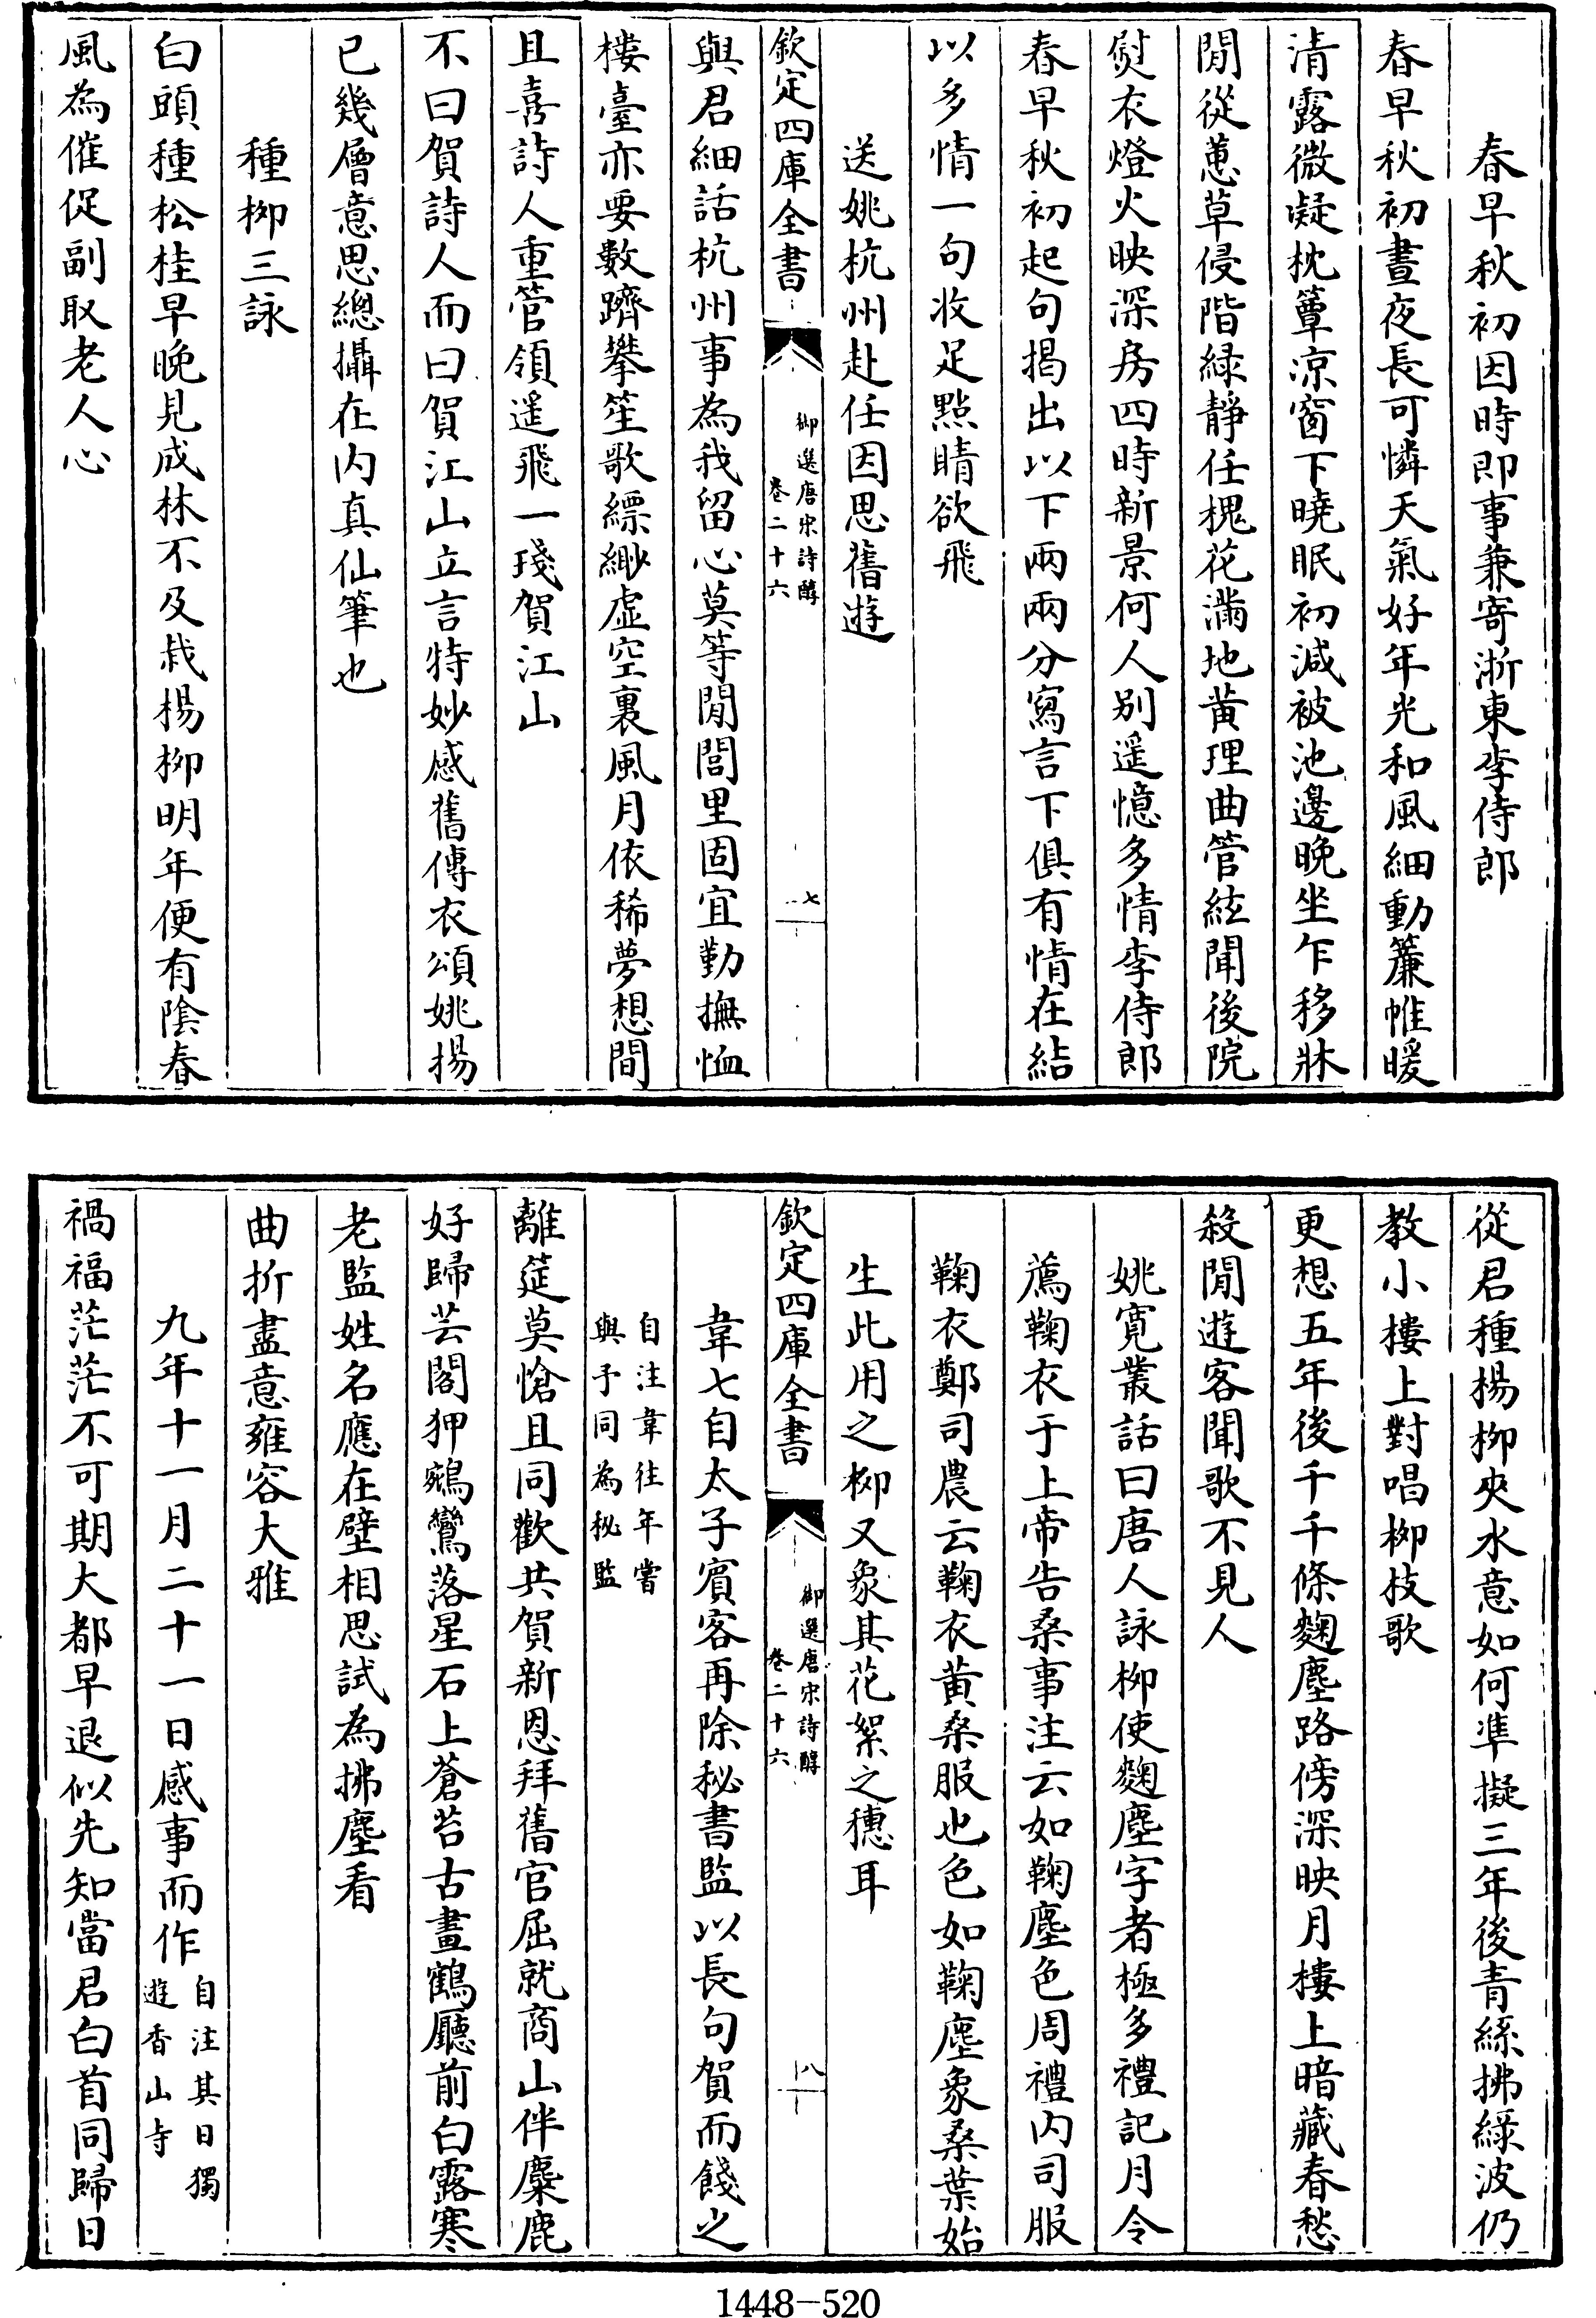 春早秋初因時即事兼寄浙東李侍郎
春早秋初晝夜長可憐天氣好年光和風細動簾帷暖
清露微凝枕簟涼窗下曉眠初減被池邊晚坐乍移牀
閒從蕙草侵階緑靜任槐花滿地黄理曲管絃聞後院
熨衣燈火映深房四時新景何人别遥憶多情李侍郎
春早秋初起句揭出以下兩兩分寫言下俱有情在結
以多情一句收足點睛欲飛
送姚杭州赴任因思舊遊
欽定四庫全書
御選唐宋詩醇
卷二十六
七
與君細話杭州事為我留心莫等閒閭里固宜勤撫恤
樓臺亦要數躋攀笙歌縹緲虚空裏風月依稀夢想間
且喜詩人重管領遥飛一琖賀江山
不曰賀詩人而曰賀江山立言特妙感舊傳衣頌姚揚
已幾層意思總攝在内真仙筆也
種柳三詠
白頭種松桂早晚見成林不及栽楊柳明年便有陰春
風為催促副取老人心
從君種楊柳夾水意如何準擬三年後青絲拂緑波仍
教小樓上對唱柳枝歌
更想五年後千千條麴塵路傍深映月樓上暗藏春愁
殺閒遊客聞歌不見人
姚寛叢話曰唐人詠柳使麴塵字者極多禮記月令
薦鞠衣于上帝告桑事注云如鞠塵色周禮内司服
鞠衣鄭司農云鞠衣黄桑服也色如鞠塵象桑葉始
生此用之柳又象其花絮之穗耳
欽定四庫全書
御選唐宋詩醇
卷二十六
八
韋七自太子賓客再除秘書監以長句賀而餞之
自注韋往年嘗
與予同為秘監
離筵莫愴且同歡共賀新恩拜舊官屈就商山伴麋鹿
好歸芸閣狎鵷鸞落星石上蒼苔古畫鶴廳前白露寒
老監姓名應在壁相思試為拂塵看
曲折盡意雍容大雅
九年十一月二十一日感事而作自注其日獨
遊香山寺
禍福茫茫不可期大都早退似先知當君白首同歸日
1448-520